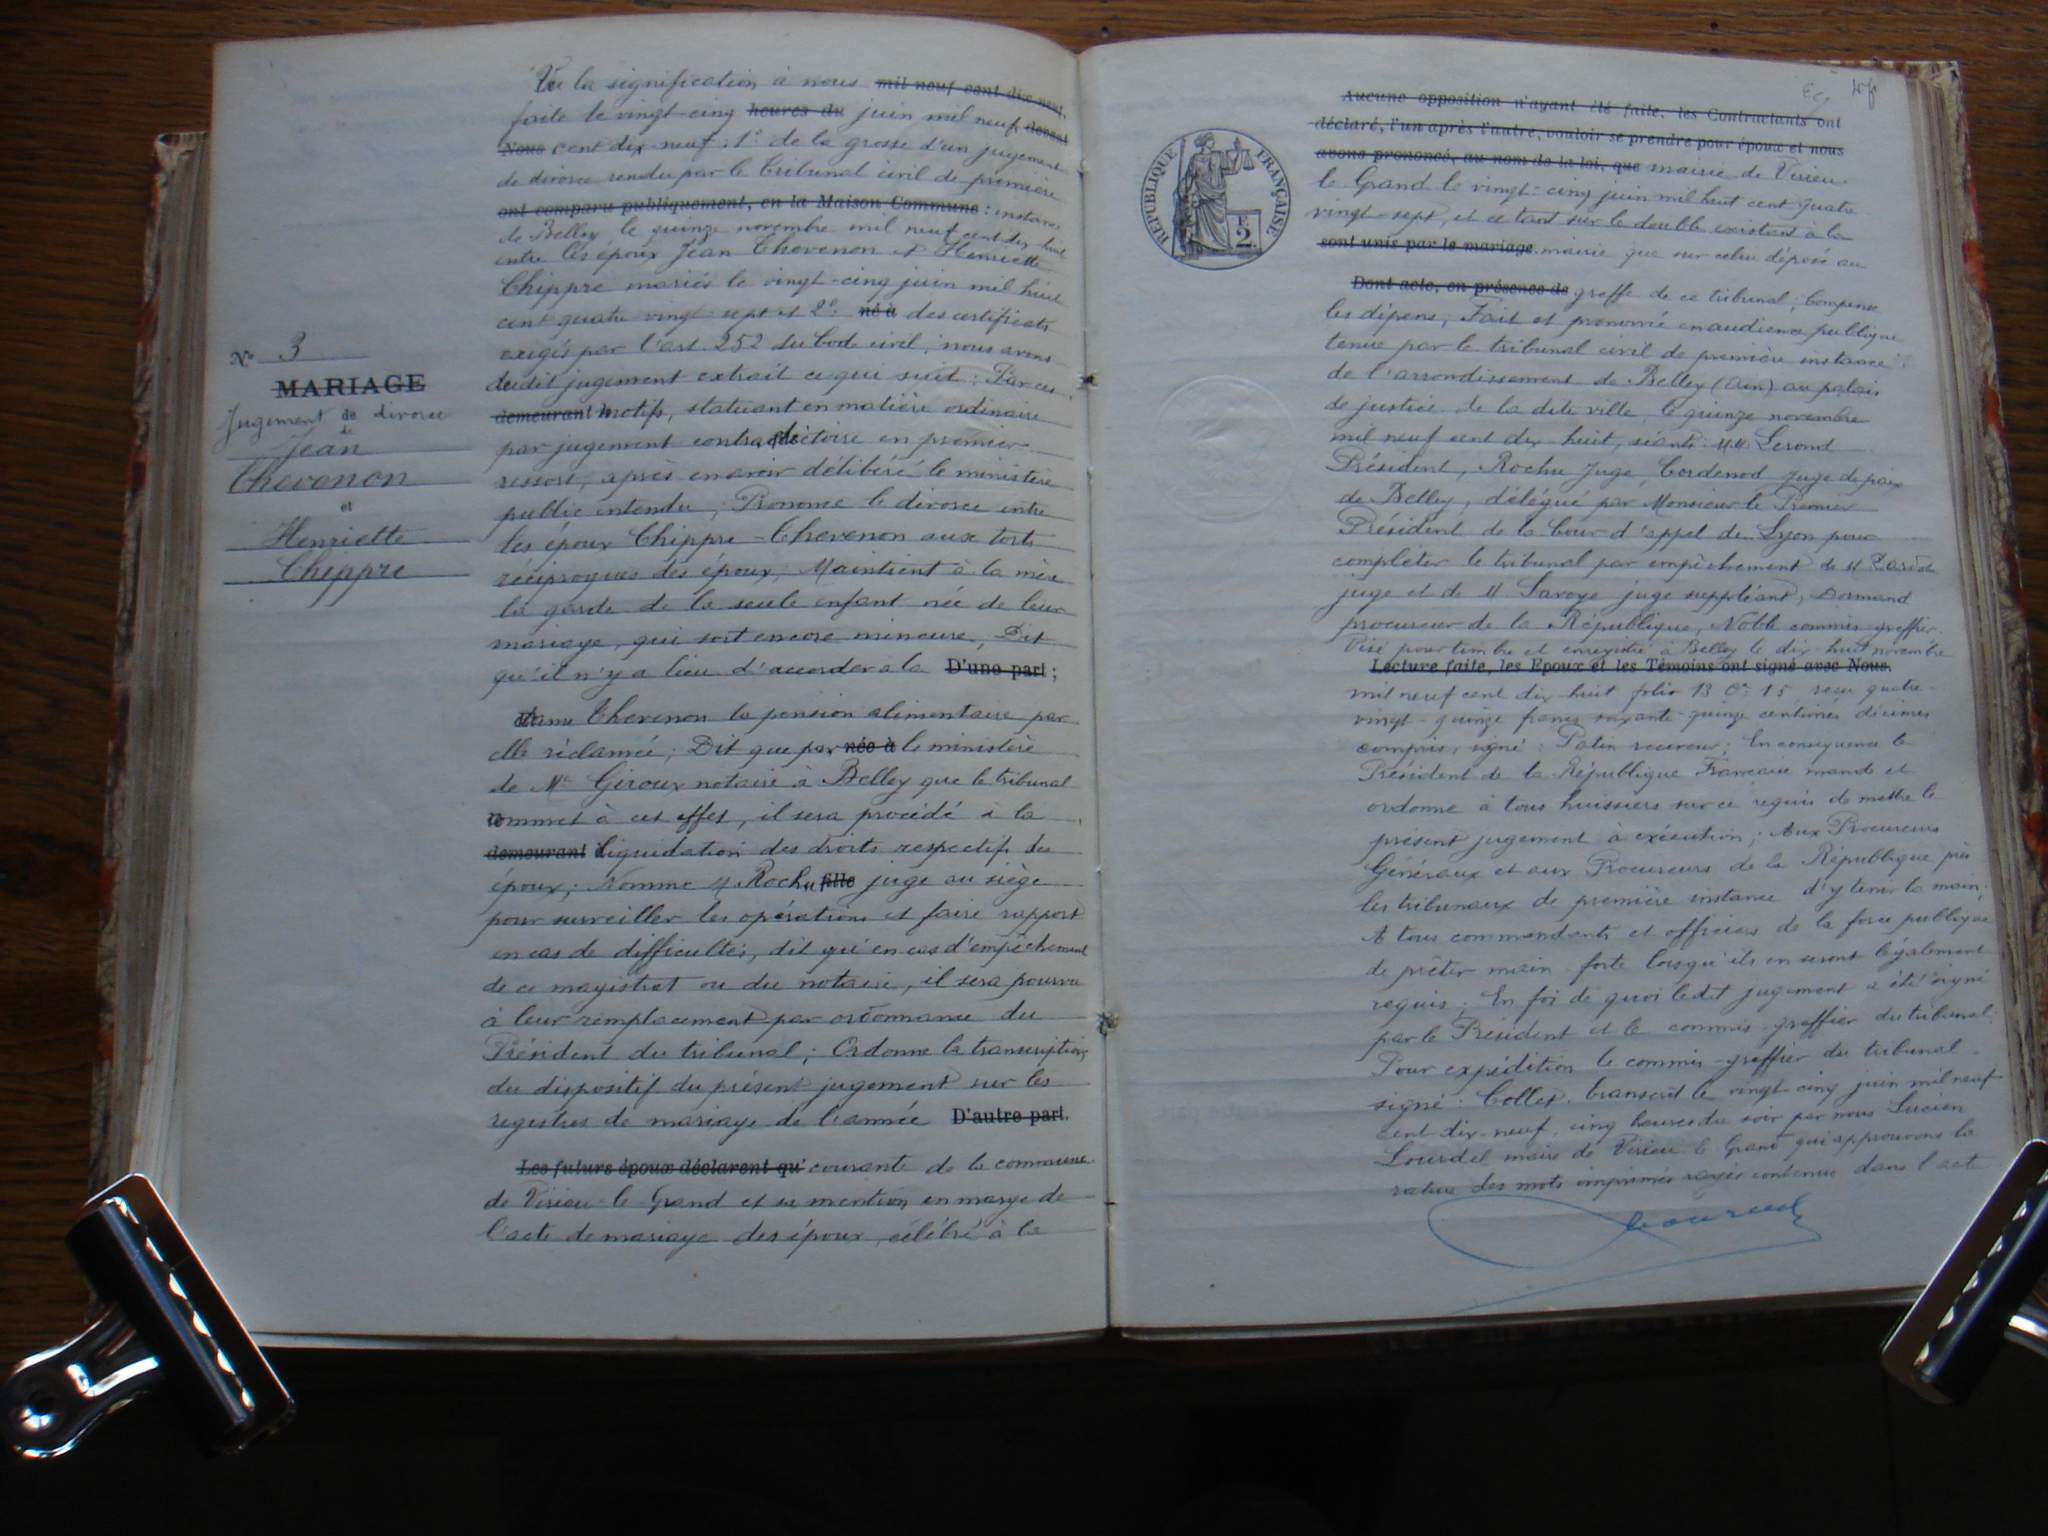 N° 3
MARIAGE
Jugement de divorce
de
Jean
Thevenon
et
Henriette
Chippre
Vu la signification à nous mil neuf cent dix-neuf,
faite le vingt-cinq heures du juin mil neuf, devant
Nous cent dix-neuf : 1° de la grosse d'un jugement
de divorce rendu par le tribunal civil de première
ont comparu publiquement, en la Maison Commune : instance
de Belley le quinze novembre mil neuf cent dix huit
entre les époux Jean Thevenon et Henriette
Chippre mariés le vingt-cinq juin mil huit
cent quatre vingt-sept et 2° né à des certificats
exigés par l'art 252 du Code civil, nous avons
dudit jugement extrait ce qui suit : Par ces
demeurant motifs, statuant en matière ordinaire
par jugement contradictoire en premier
ressort, après en avoir délibéré le ministère
public entendu ; Prononce le divorce entre
les époux Chippre-Thevenon aux torts
réciproques des époux ; Maintient à la mère
la garde de la seule enfant née de leur
mariage, qui soit encore mineure ; Dit
qu'il n'y a lieu d'accorder à la D'une part ;
dame Thevenon la pension alimentaire par
elle réclamée ; Dit que par née à le ministère
de Me Giroux notaire à Belley que le tribunal
commet à cet effet, il sera procédé à la
demeurant liquidation des droits respectifs des
époux ; Nomme M. Rochu fille juge au siège
pour surveiller les opérations et faire rapport
en cas de difficultés, dit qu'en cas d'empêchement
de ce magistrat ou du notaire, il sera pourvu
à leur remplacement par ordonnance du
Président du tribunal ; Ordonne la transcription
du dispositif du présent jugement sur les
registres de mariage de l'année D'autre part.
Les futurs époux déclarent qu' courante de la commune
de Virieu-le-Grand et sa mention en marge de
l'acte de mariage des époux, célébré à la
RÉPUBLIQUE FRANÇAISE
Aucune opposition n'ayant été faite, les Contractants ont
déclaré, l'un après l'autre, vouloir se prendre pour époux et nous
avons prononcé, au nom de la loi, que mairie de Virieu
le Grand le vingt-cinq juin mil huit cent quatre
vingt-sept, et ce tant sur le double existant à la
sont unis par le mariage. mairie que sur celui déposé au
Dont acte, en présence de greffe de ce tribunal ; Compense
les dépens ; Fait et prononcé en audience publique
tenue par le tribunal civil de première instance
de l'arrondissement de Belley (Ain) au palais
de justice de la dite ville, le quinze novembre
mil neuf cent dix-huit, séants : M.M. Lerond
Président, Rochu Juge, Cordenod Juge de paix
de Belley, délégué par Monsieur le Premier
Président de la Cour d'appel de Lyon pour
compléter le tribunal par empêchement de M
juge et de M Savoye juge suppléant, Dormand
procureur de la République, Noble commis-greffier.
Visé pour timbre et enregistré à Belley le dix-huit novembre
Lecture faite, les Epoux et les Témoins ont signé avec Nous.
mil neuf cent dix huit folio 13 Ce 15, reçu quatre
vingt-quinze francs soixante-quinze centimes décimes
compris, signé : Patin receveur ; En conséquence le
Président de la République Française mande et
ordonne à tous huissiers sur ce requis de mettre le
présent jugement à exécution ; Aux Procureurs
Généraux et aux Procureurs de la République près
les tribunaux de première instance d'y tenir la main.
A tous commandants et officiers de la force publique
de prêter main-forte lorsqu'ils en seront légalement
requis ; En foi de quoi ledit jugement a été signé
par le Président et le commis-greffier du tribunal.
Pour expédition le commis-greffier du tribunal
signé : Collet. transcrit le vingt cinq juin mil neuf
cent dix-neuf, cinq heures du soir par nous Lucien
Lourdel maire de Virieu le Grand qui approuvons la
rature des mots imprimés rayés contenue dans l'acte